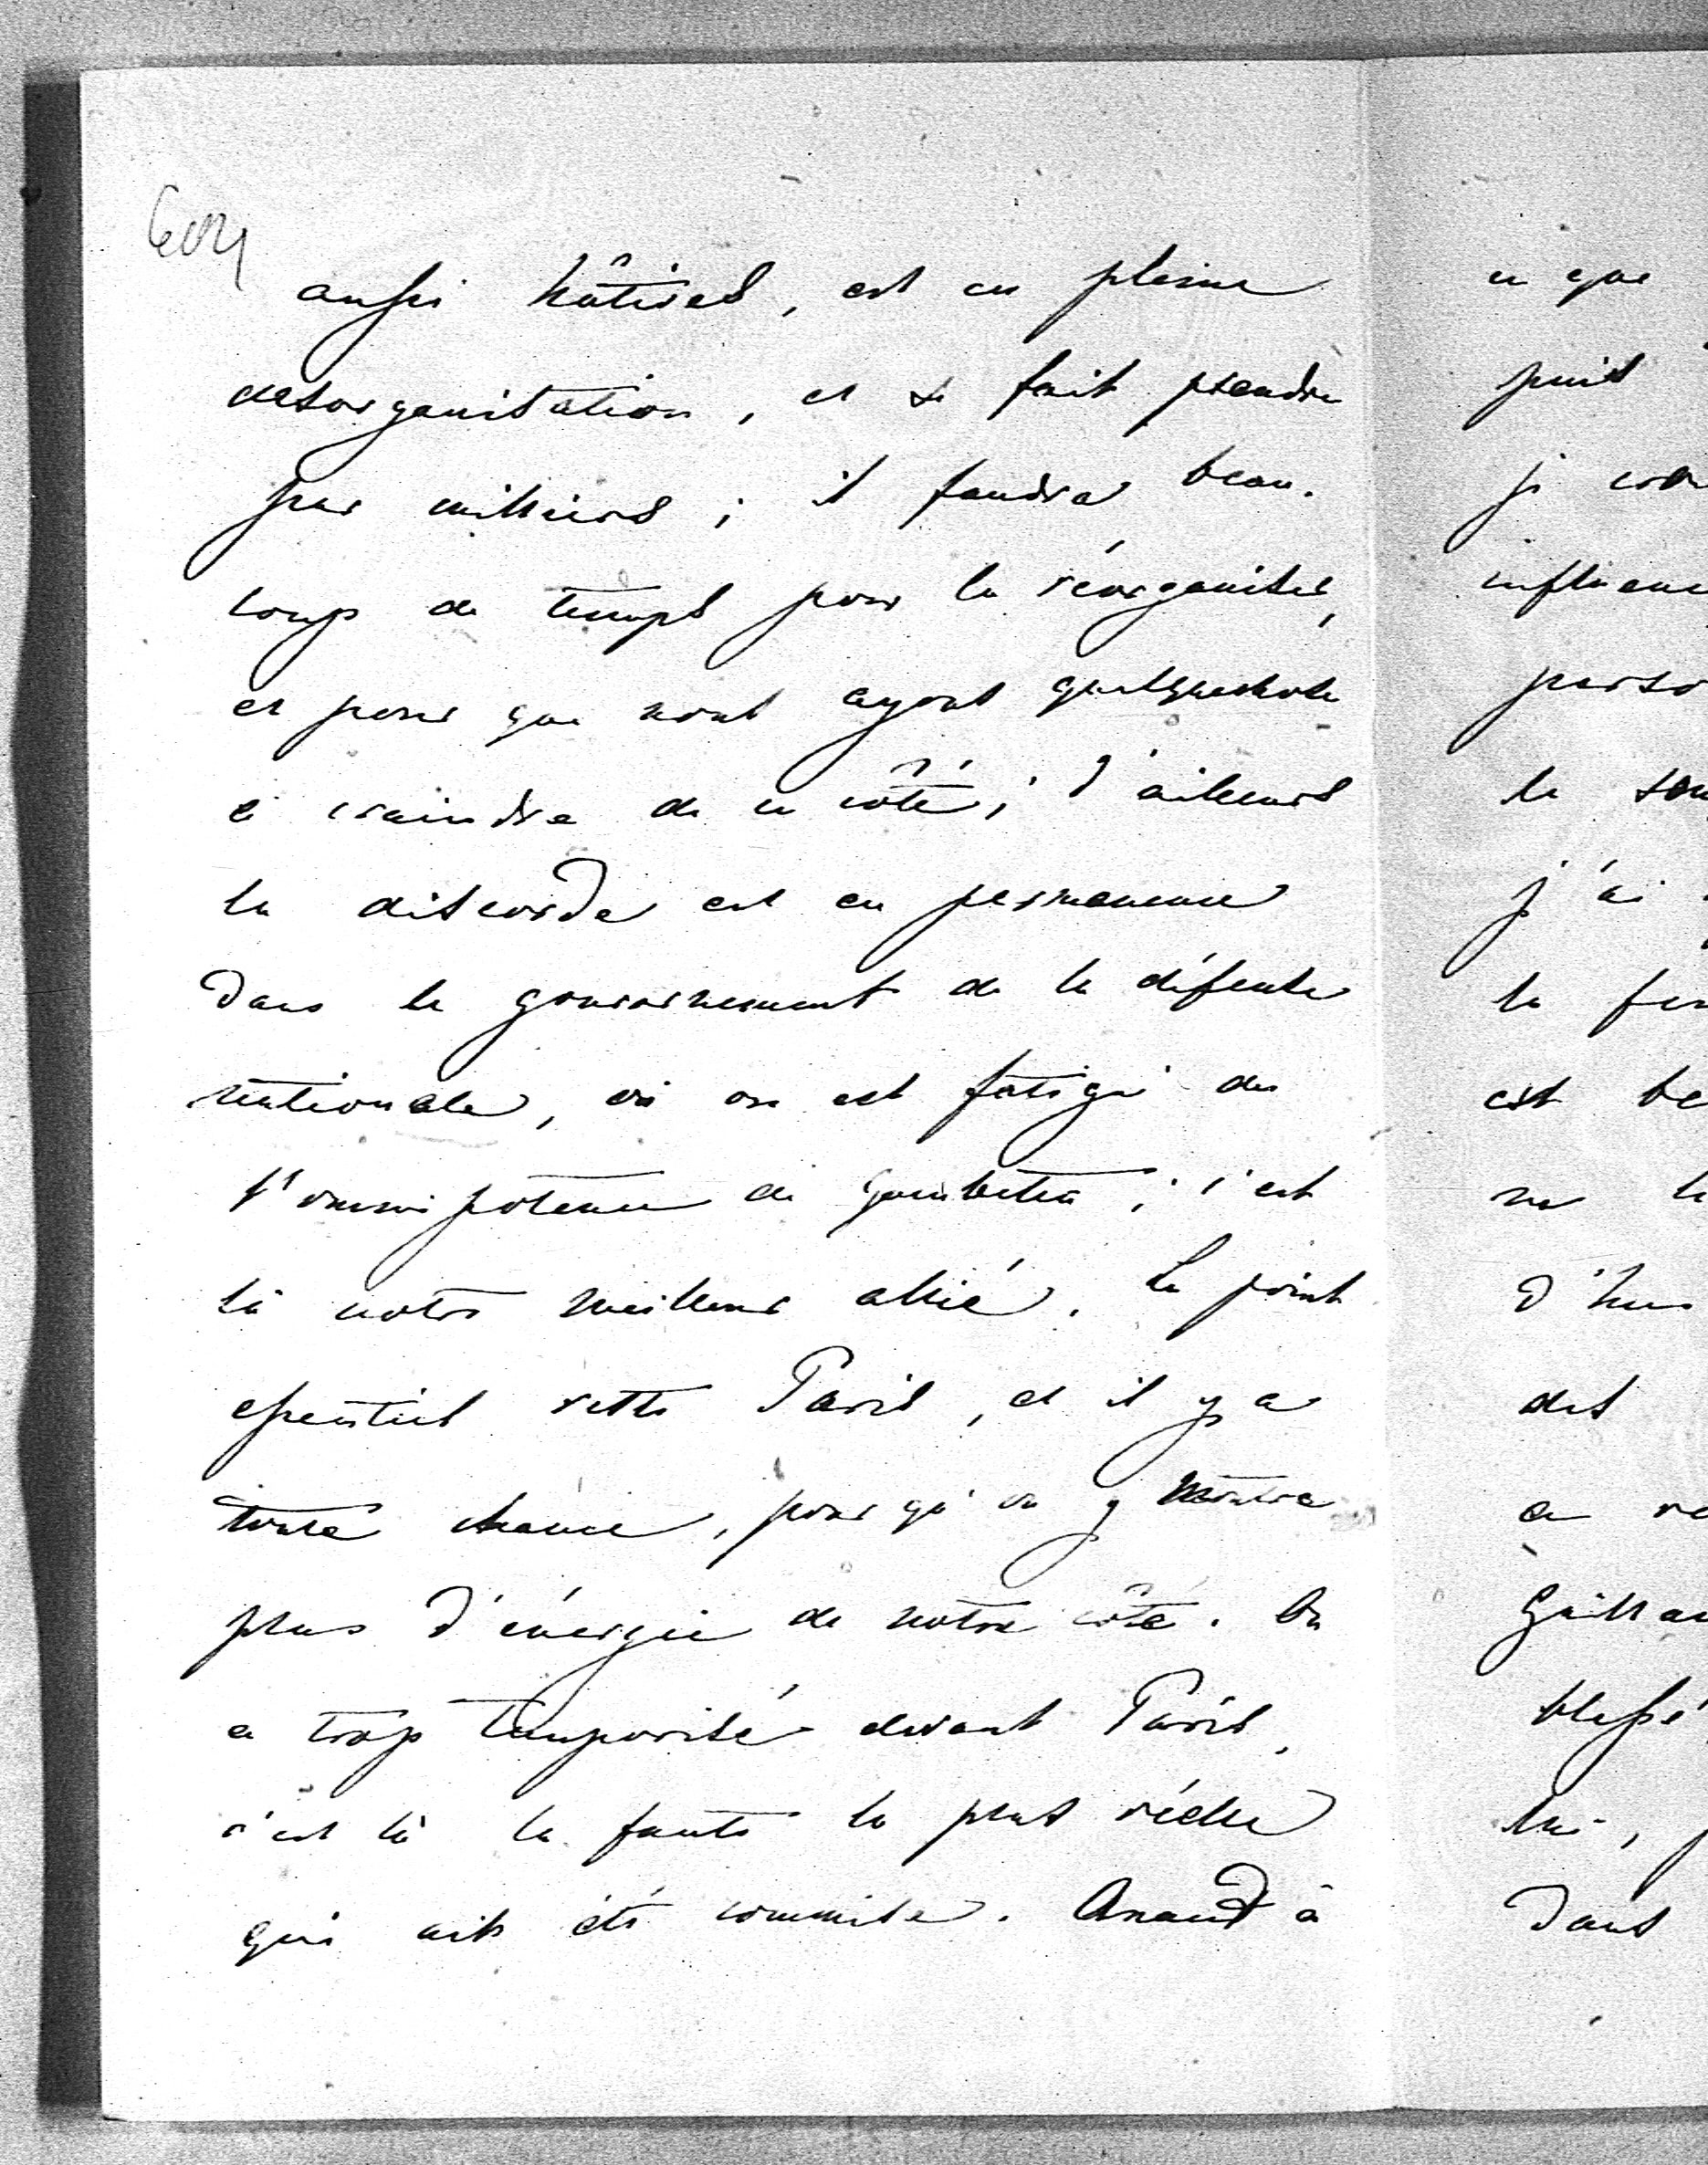 aussi hâtives, est en pleine
desorganisation, et se fait prendre
par milliers; il faudra beau-
coup de temps pour la réorganiser,
et pour que nous ayons quelquechose
à craindre de ce côté; d'ailleurs
la discorde est en permanence
dans le gouvernement de la défense
nationale, où on est fatigué de
l'omnipotence de Gambetta; c'est
là notre meilleur allié. Le point
essentiel reste Paris, et il y a
toute chance, pour qu'on y montre
plus d'énergie de notre côté. On
a trop temporisé devant Paris,
c'est là la faute la plus réelle
qui ait été commise. Quand à
ce que
puis
je
influenc
perso
le
j'ai
la
est be
ne
d'hu
des
a
Gaillar
blessé
lui,
dans